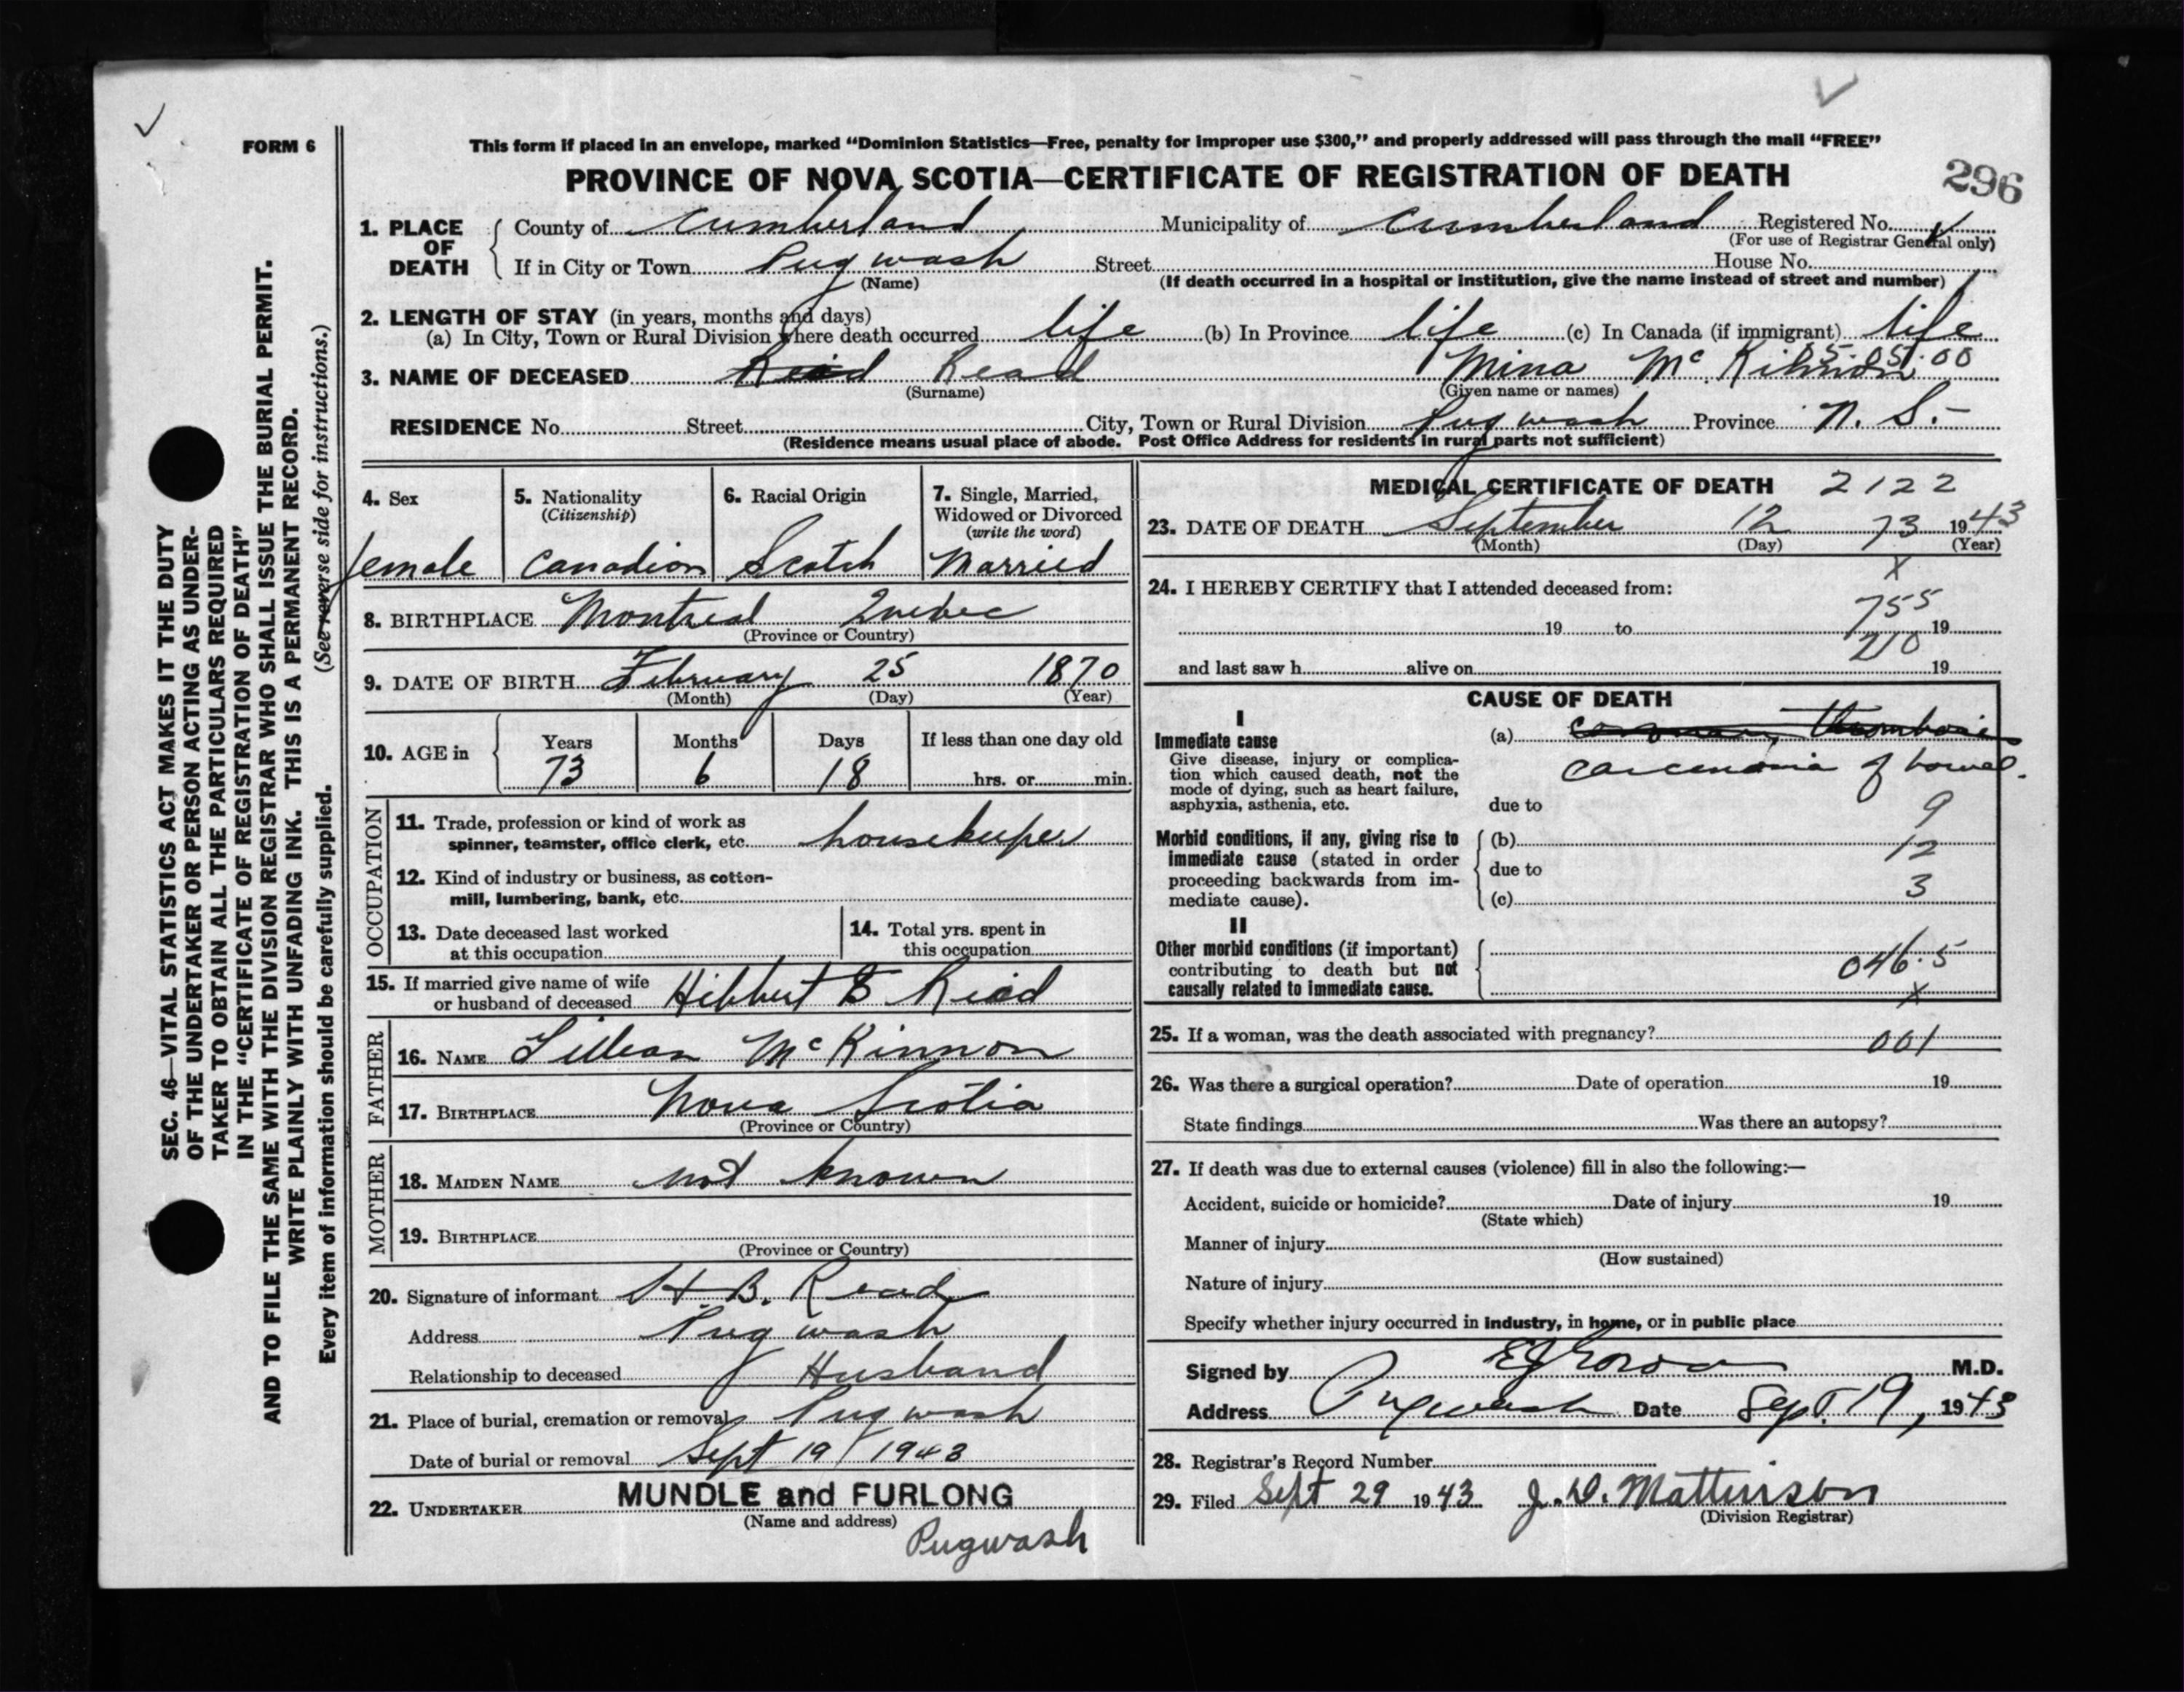 FORM 6
This form if placed in an envelope, marked "Dominion Statistics—Free, penalty for improper use $300," and properly addressed will pass through the mail "FREE"
PROVINCE OF NOVA SCOTIA—CERTIFICATE OF REGISTRATION OF DEATH
296
1. PLACE OF DEATH
County of Cumberland Municipality of Cumberland Registered No.
(For use of Registrar General only)
If in City or Town Pugwash Street House No.
(Name) (If death occurred in a hospital or institution, give the name instead of street and number)
2. LENGTH OF STAY (in years, months and days)
(a) In City, Town or Rural Division where death occurred life (b) In Province life (c) In Canada (if immigrant) life
3. NAME OF DECEASED Read Mina McKinnon
(Surname) (Given name or names)
RESIDENCE No. Street City, Town or Rural Division Pugwash Province N. S.-
(Residence means usual place of abode. Post Office Address for residents in rural parts not sufficient)
4. Sex female
5. Nationality (Citizenship) Canadian
6. Racial Origin Scotch
7. Single, Married, Widowed or Divorced (write the word) Married
8. BIRTHPLACE Montreal Quebec
(Province or Country)
9. DATE OF BIRTH February 25 1870
(Month) (Day) (Year)
10. AGE in Years 73 Months 6 Days 18 If less than one day old hrs. or min.
OCCUPATION
11. Trade, profession or kind of work as
spinner, teamster, office clerk, etc. housekeeper
12. Kind of industry or business, as cotton-
mill, lumbering, bank, etc.
13. Date deceased last worked
at this occupation
14. Total yrs. spent in
this occupation
15. If married give name of wife
or husband of deceased Hibbert B Read
FATHER
16. NAME McKinnon
17. BIRTHPLACE Nova Scotia
(Province or Country)
MOTHER
18. MAIDEN NAME not known
19. BIRTHPLACE
(Province or Country)
20. Signature of informant H. B. Read
Address Pugwash
Relationship to deceased Husband
21. Place of burial, cremation or removal Pugwash
Date of burial or removal Sept 19 / 1943
22. UNDERTAKER MUNDLE and FURLONG
(Name and address)
Pugwash
MEDICAL CERTIFICATE OF DEATH 2122
23. DATE OF DEATH September 12 73 1943
(Month) (Day) (Year)
x
24. I HEREBY CERTIFY that I attended deceased from:
755
19 to 19
210
and last saw h alive on 19
CAUSE OF DEATH
I
Immediate cause
Give disease, injury or complica-
tion which caused death, not the
mode of dying, such as heart failure,
asphyxia, asthenia, etc.
(a) coronary thrombosis
carcenoma of bowel.
due to
9
Morbid conditions, if any, giving rise to
immediate cause (stated in order
proceeding backwards from im-
mediate cause).
(b)
12
due to
3
(c)
II
Other morbid conditions (if important)
contributing to death but not
causally related to immediate cause.
046.5
x
25. If a woman, was the death associated with pregnancy? 001
26. Was there a surgical operation? Date of operation 19
State findings Was there an autopsy?
27. If death was due to external causes (violence) fill in also the following:—
Accident, suicide or homicide? Date of injury 19
(State which)
Manner of injury
(How sustained)
Nature of injury
Specify whether injury occurred in industry, in home, or in public place
Signed by M.D.
Address Pugwash Date Sept. 19, 1943
28. Registrar's Record Number
29. Filed Sept 29 1943 J. D. Mattinson
(Division Registrar)
SEC. 46—VITAL STATISTICS ACT MAKES IT THE DUTY
OF THE UNDERTAKER OR PERSON ACTING AS UNDER-
TAKER TO OBTAIN ALL THE PARTICULARS REQUIRED
IN THE "CERTIFICATE OF REGISTRATION OF DEATH"
AND TO FILE THE SAME WITH THE DIVISION REGISTRAR WHO SHALL ISSUE THE BURIAL PERMIT.
WRITE PLAINLY WITH UNFADING INK. THIS IS A PERMANENT RECORD.
Every item of information should be carefully supplied. (See reverse side for instructions.)